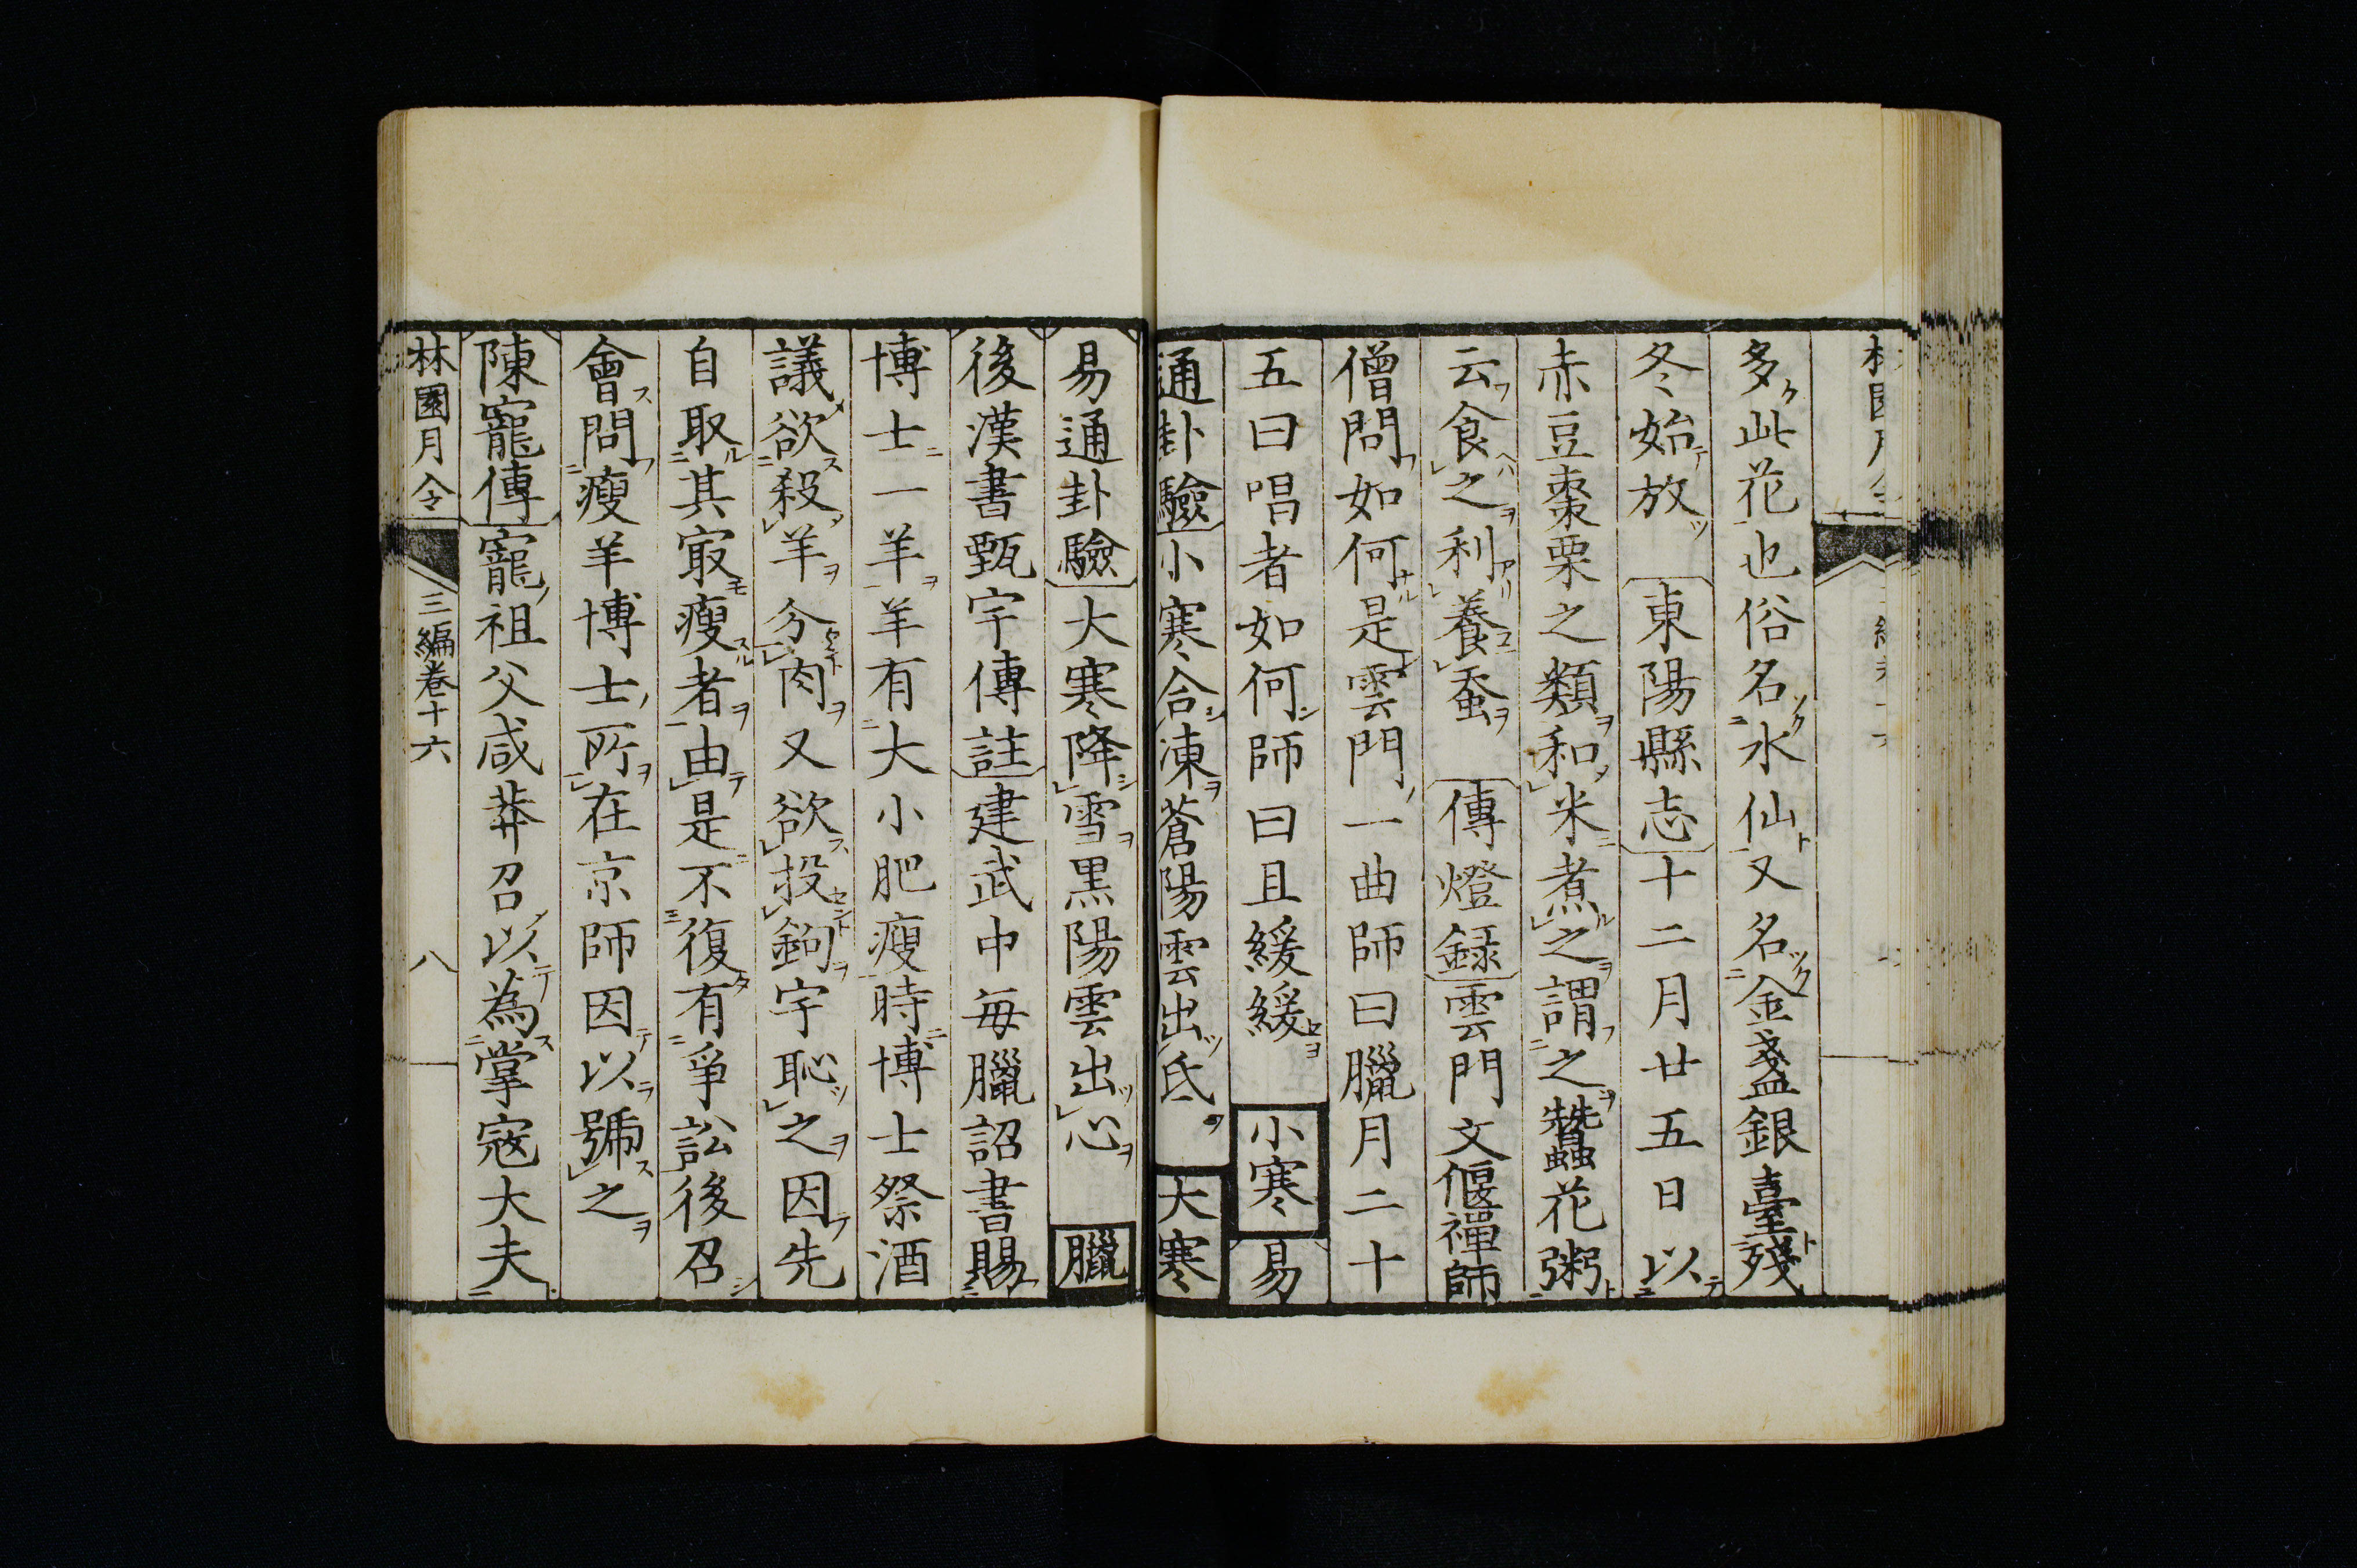 多此花也俗名水仙又名金盞銀臺殘
冬始放 東陽縣志十二月廿五日以
赤豆棗栗之類和米煮之謂之蠶花粥
云食之利養蚕 傳燈録雲門文偃禪師
僧問如何是雲門一曲師曰臘月二十
五曰唱者如何師曰且緩緩 小寒 易
通卦驗小寒合凍蒼陽雲出氐 大寒
易通卦驗大寒降雪黒陽雲出心 臘
後漢書甄宇傳註建武中每臘詔書賜
博士一羊羊有大小肥瘦時博士祭酒
議欲殺羊分肉又欲投鉤宇恥之因先
自取其㝡瘦者由是不復有爭訟後召
會問瘦羊博士所在京師因以號之
陳寵傳寵祖父咸莽召以為掌寇大夫
林園月令 三編卷十六 八